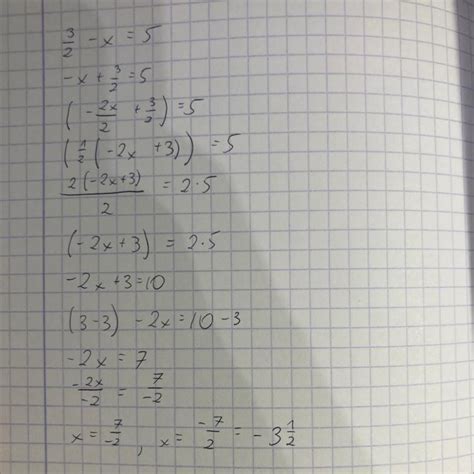 3/2 - x = 5
-x + 3/2 = 5
( -2x/2 + 3/2 ) = 5
( 1/2 ( -2x + 3 ) ) = 5
2 (-2x+3) / 2 = 2·5
(-2x+3) = 2·5
-2x+3=10
(3-3) - 2x = 10-3
-2x = 7
-2x/-2 = 7/-2
x = 7/-2 , x = -7/2 = -3 1/2